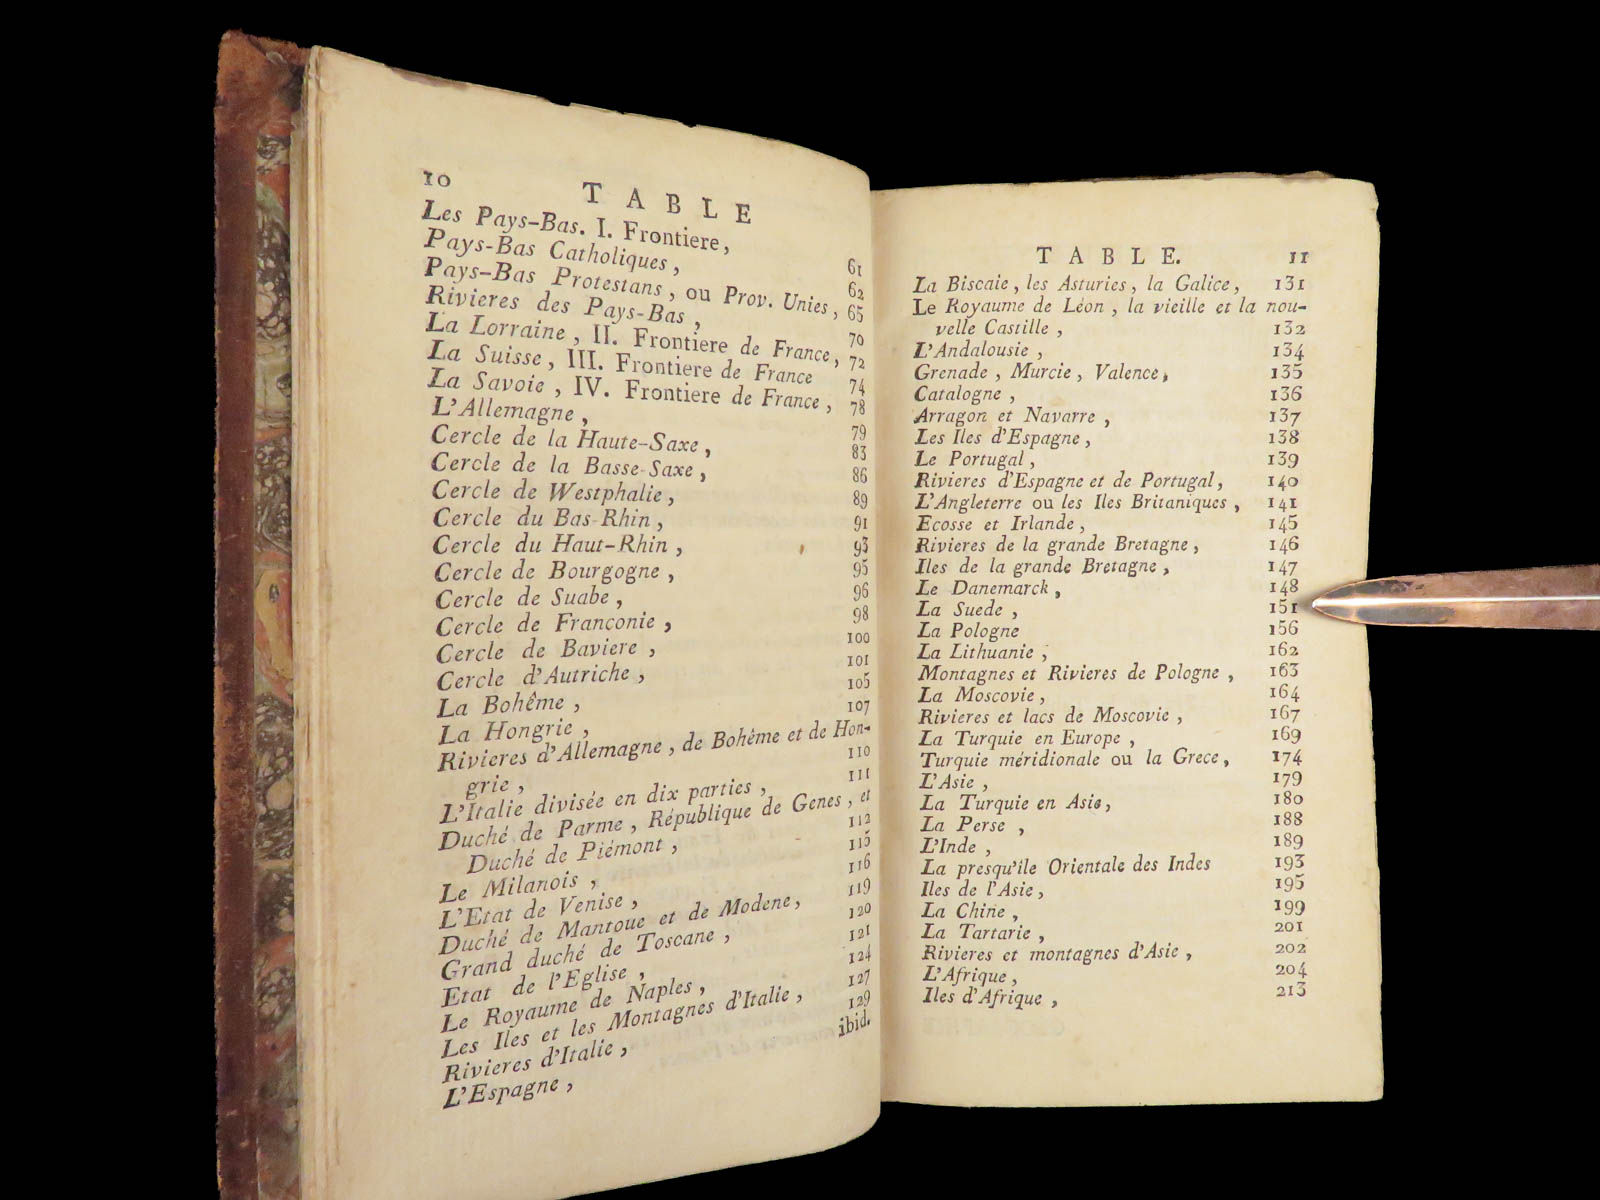 10 TABLE
Les Pays-Bas. I. Frontiere, 61
Pays-Bas Catholiques, 62
Pays-Bas Protestans, ou Prov. Unies, 65
Rivieres des Pays-Bas, 70
La Lorraine, II. Frontiere de France, 72
La Suisse, III. Frontiere de France 74
La Savoie, IV. Frontiere de France, 78
L'Allemagne, 79
Cercle de la Haute-Saxe, 83
Cercle de la Basse-Saxe, 86
Cercle de Westphalie, 89
Cercle du Bas-Rhin, 91
Cercle du Haut-Rhin, 93
Cercle de Bourgogne, 95
Cercle de Suabe, 96
Cercle de Franconie, 98
Cercle de Baviere, 100
Cercle d'Autriche, 101
La Bohême, 105
La Hongrie, 107
Rivieres d'Allemagne, de Bohême et de Hon-
grie, 110
L'Italie divisée en dix parties, 111
Duché de Parme, République de Genes, et
Duché de Piémont, 112
Le Milanois, 115
L'Etat de Venise, 116
Duché de Mantoue et de Modene, 119
Grand duché de Toscane, 120
Etat de l'Eglise, 121
Le Royaume de Naples, 124
Les Iles et les Montagnes d'Italie, 127
Rivieres d'Italie, 129
L'Espagne, ibid.
TABLE. 11
La Biscaie, les Asturies, la Galice, 131
Le Royaume de Léon, la vieille et la nou-
velle Castille, 132
L'Andalousie, 134
Grenade, Murcie, Valence, 135
Catalogne, 136
Arragon et Navarre, 137
Les Iles d'Espagne, 138
Le Portugal, 139
Rivieres d'Espagne et de Portugal, 140
L'Angleterre ou les Iles Britaniques, 141
Ecosse et Irlande, 145
Rivieres de la grande Bretagne, 146
Iles de la grande Bretagne, 147
Le Danemarck, 148
La Suede, 151
La Pologne 156
La Lithuanie, 162
Montagnes et Rivieres de Pologne, 163
La Moscovie, 164
Rivieres et lacs de Moscovie, 167
La Turquie en Europe, 169
Turquie méridionale ou la Grece, 174
L'Asie, 179
La Turquie en Asie, 180
La Perse, 188
L'Inde, 189
La presqu'ile Orientale des Indes 193
Iles de l'Asie, 195
La Chine, 199
La Tartarie, 201
Rivieres et montagnes d'Asie, 202
L'Afrique, 204
Iles d'Afrique, 213